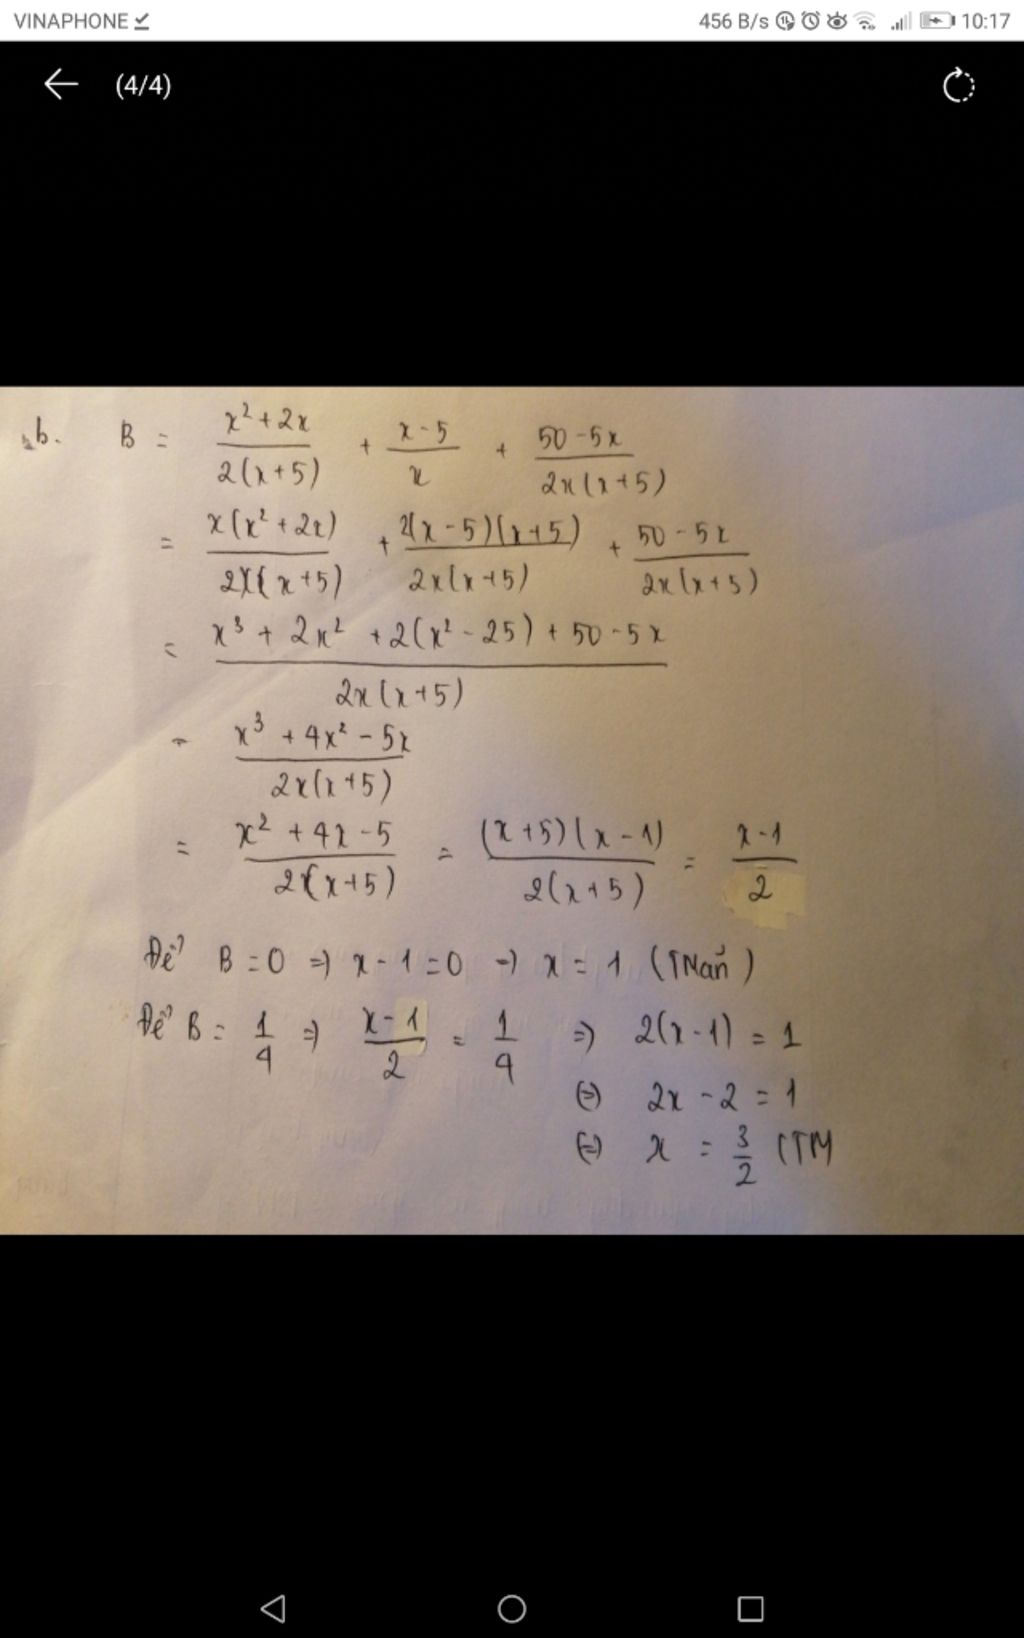 VINAPHONE 456 B/s 10:17
(4/4)
b. B = \frac{x^2+2x}{2(x+5)} + \frac{x-5}{x} + \frac{50-5x}{2x(x+5)}
= \frac{x(x^2+2x)}{2x(x+5)} + \frac{2(x-5)(x+5)}{2x(x+5)} + \frac{50-5x}{2x(x+5)}
= \frac{x^3+2x^2+2(x^2-25)+50-5x}{2x(x+5)}
= \frac{x^3+4x^2-5x}{2x(x+5)}
= \frac{x^2+4x-5}{2(x+5)} = \frac{(x+5)(x-1)}{2(x+5)} = \frac{x-1}{2}
Để B=0 => x-1=0 => x=1
Để B= \frac{1}{4} => \frac{x-1}{2} = \frac{1}{4} => 2(x-1)=1
(=) 2x-2=1
(=) x = \frac{3}{2} (TM